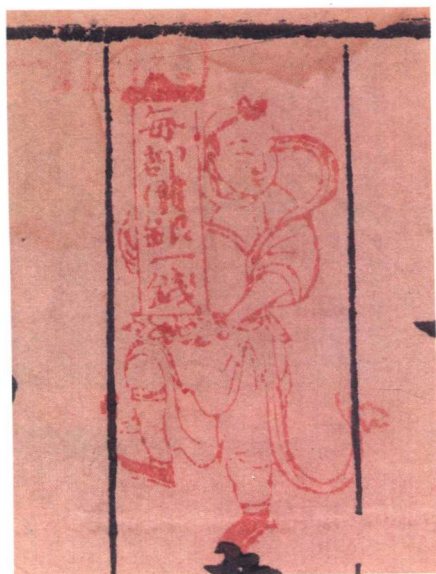 每部價銀一錢